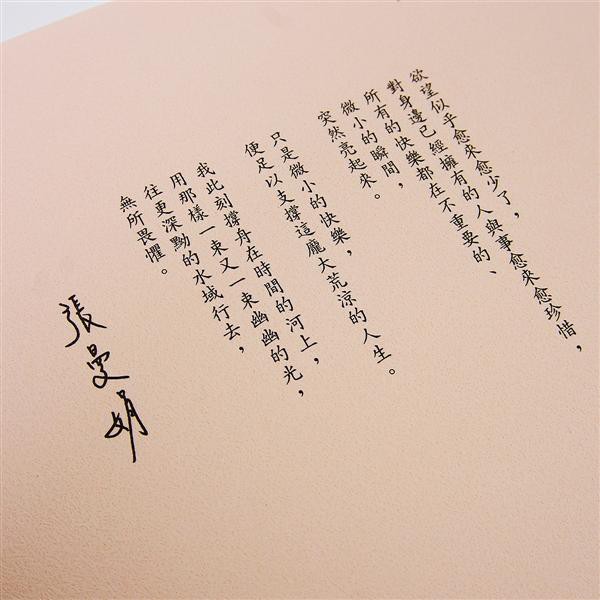 欲望似乎愈來愈少了，
對身邊已經擁有的人與事愈來愈珍惜，
所有的快樂都在不重要的、
微小的瞬間，
突然亮起來。
只是微小的快樂，
便足以支撐這龐大荒涼的人生。
我此刻撐舟在時間的河上，
用那樣一束又一束幽幽的光，
往更深黝的水域行去，
無所畏懼。
張曼娟